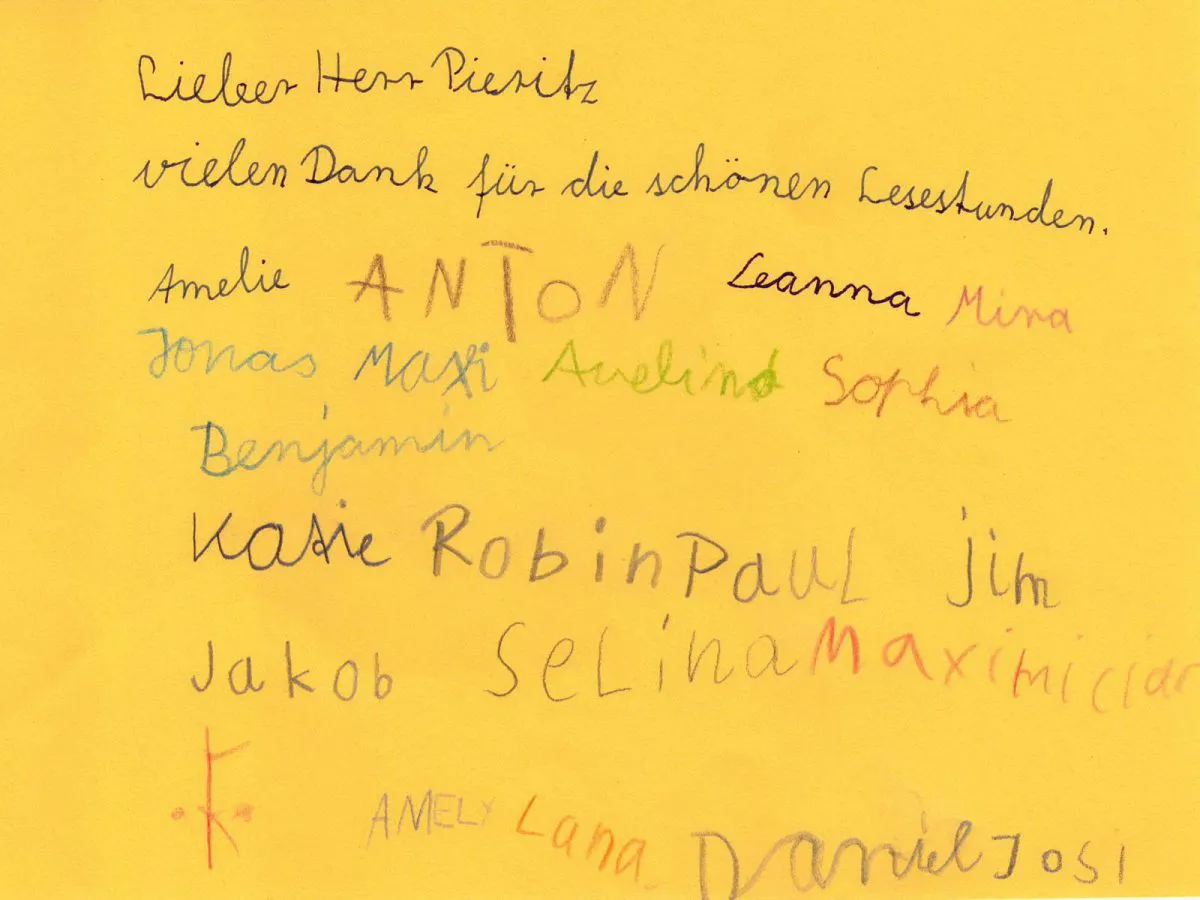 Lieber Herr Pieritz
vielen Dank für die schönen Lesestunden.
Amelie ANTON Leanna Mina
Jonas Maxi Avelina Sophia
Benjamin
Katie Robin PaUL jim
Jakob SeLina Maximilian
K
AMELY Lana Daniel Josi